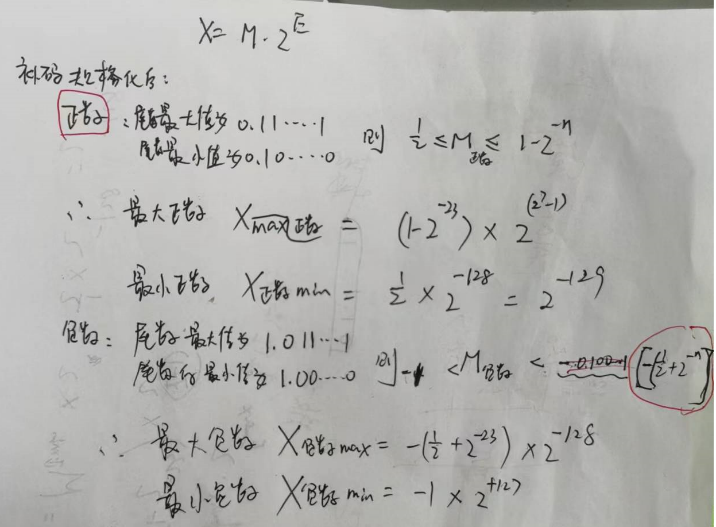 X = M · 2^E
补码规格化后：
正数：尾数最大值为 0.11……1
尾数最小值为 0.10……0 则 1/2 ≤ M正数 ≤ 1-2^-n
∴ 最大正数 Xmax正数 = (1-2^-23) × 2^(2^7-1)
最小正数 X正数min = 1/2 × 2^-128 = 2^-129
负数：尾数最大值为 1.011…1
尾数的最小值为 1.00……0 则 -1 < M负数 < [-(1/2+2^-n)]
∴ 最大负数 X负数max = -(1/2+2^-23) × 2^-128
最小负数 X负数min = -1 × 2^+127